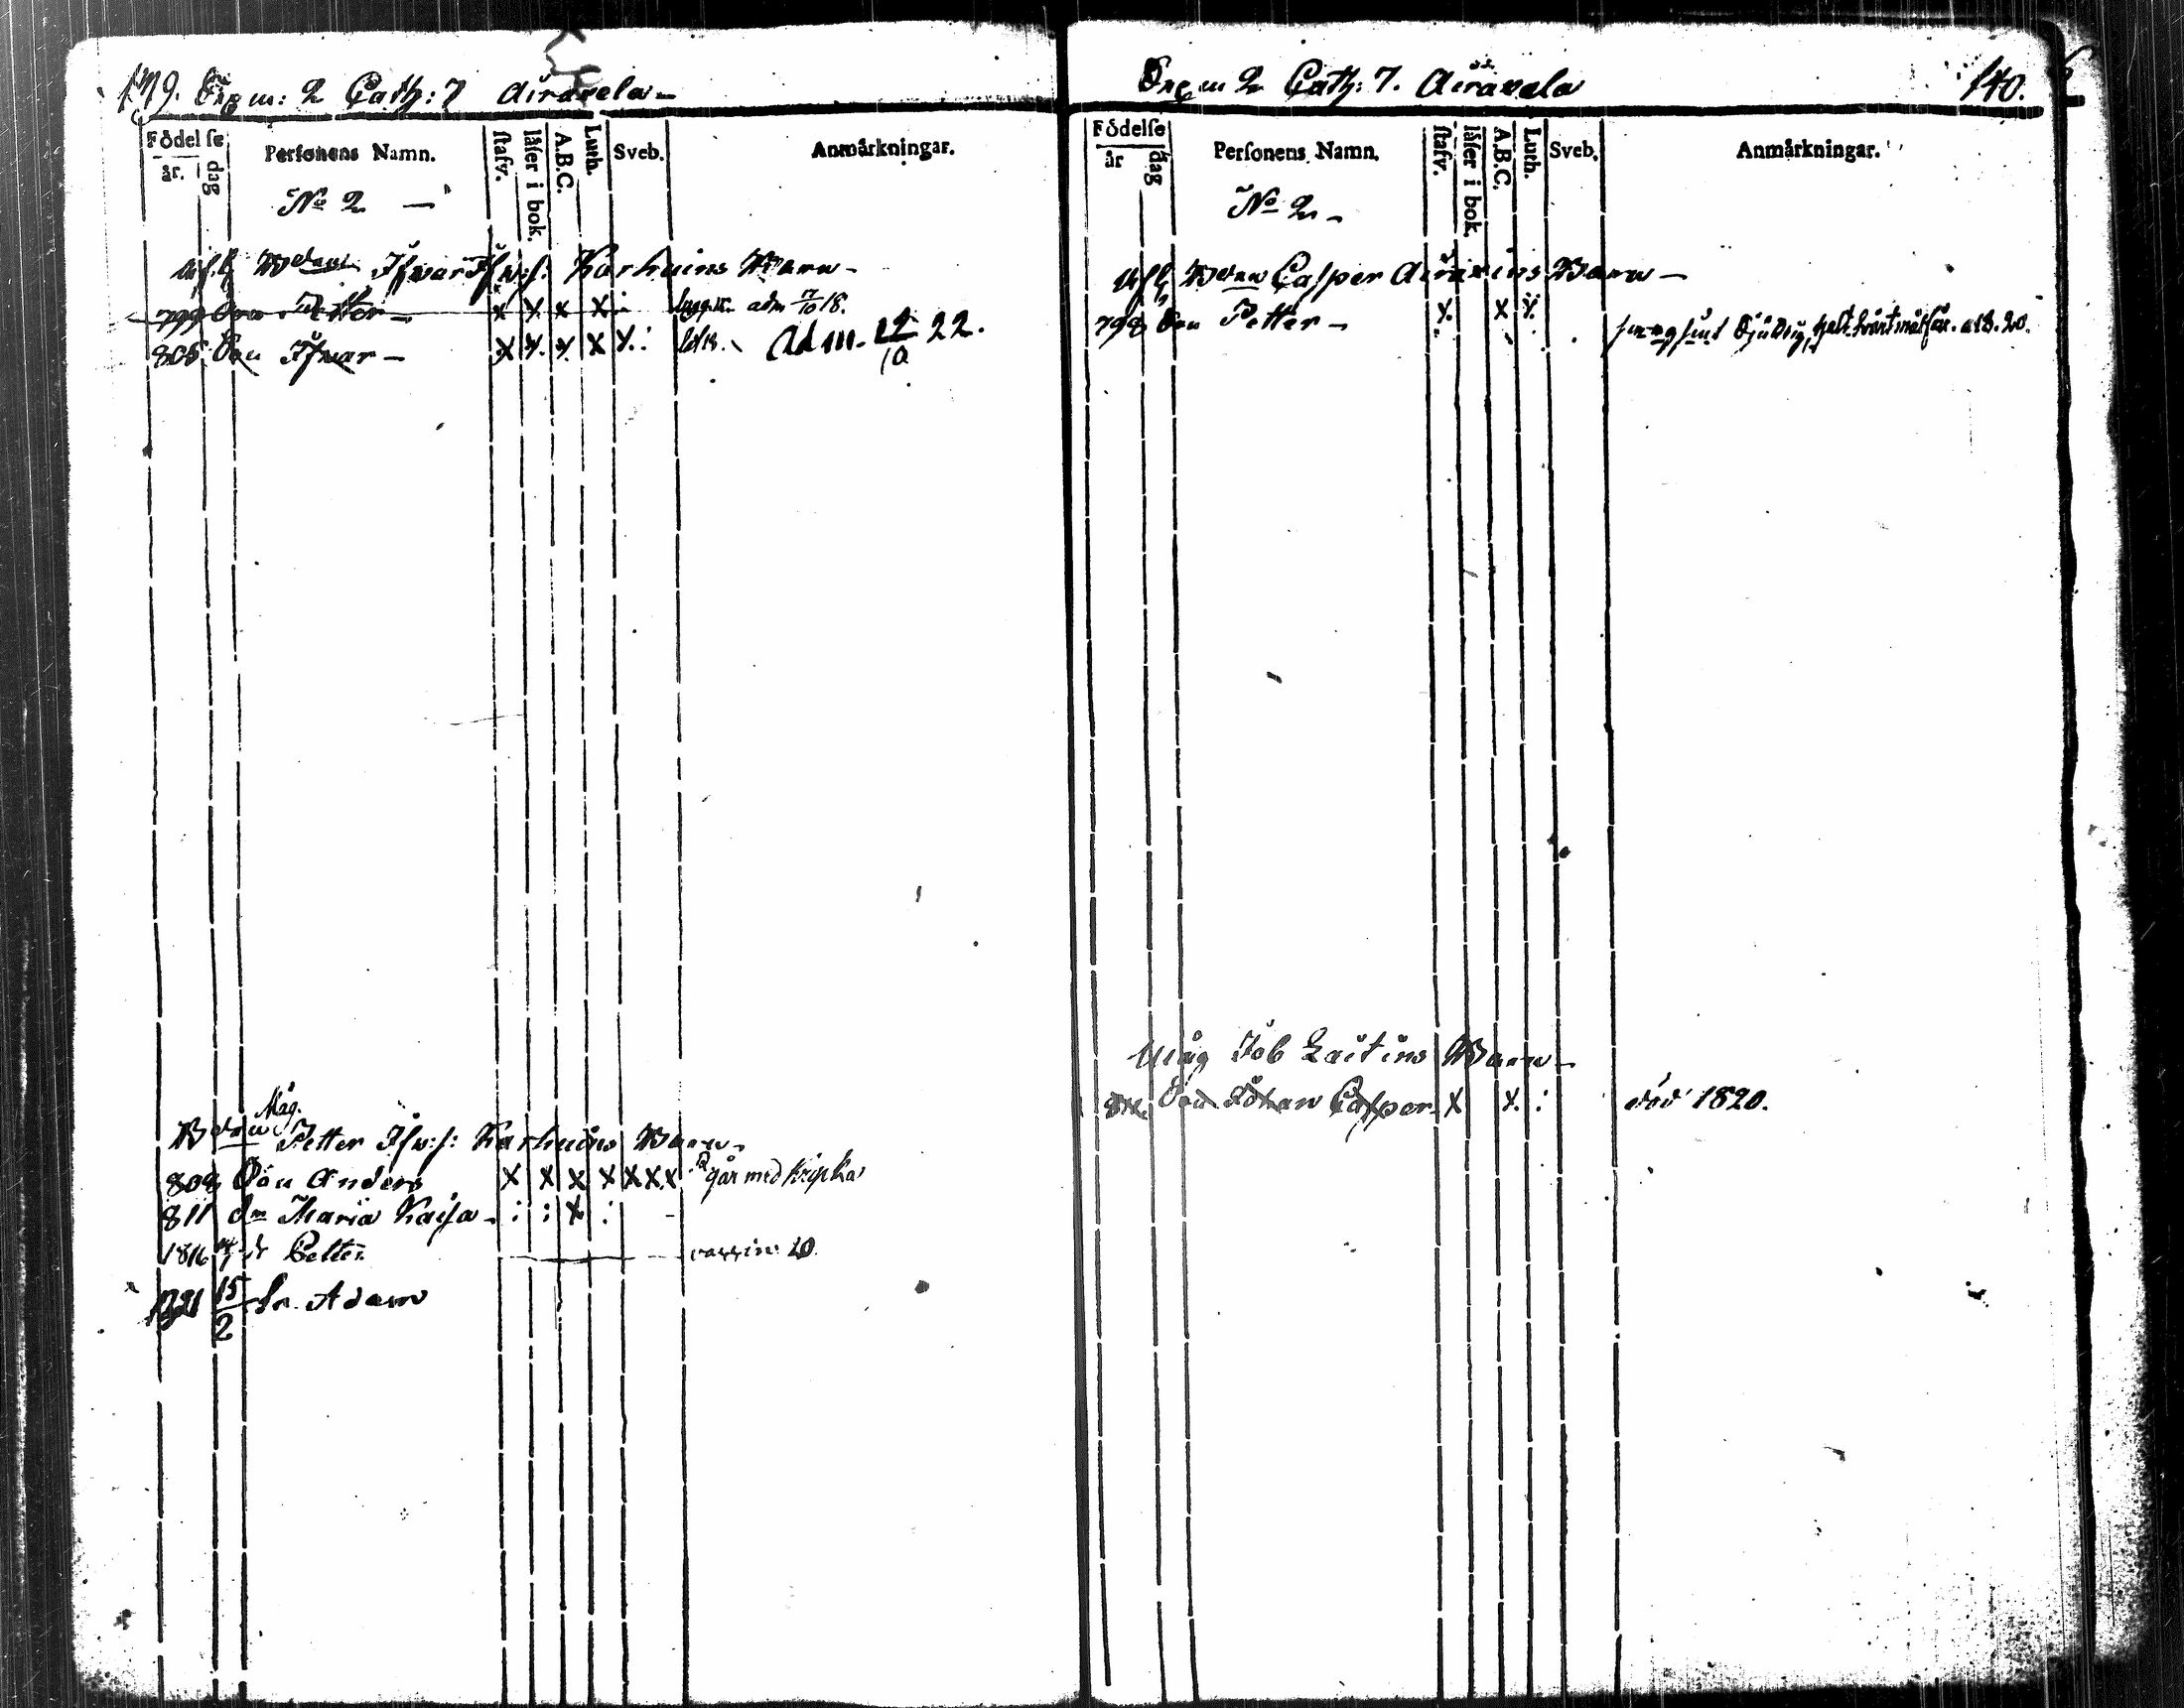 139. Exm: 2 Cath: 7 Airaxela
Födelſe
år. dag
Perſonens Namn.
ſtafv.
läſer i bok.
A.B.C.
Luth.
Sveb.
Anmärkningar.
No 2
Ifwar Ifw:ſ: Karhuins Barn
799 Son Petter x x x x adm 7/10 18.
805 Son Ifwar x x x x x Adm. 22.
Måg.
Petter Ifw:ſ: Karhuins Barn
808 Son Anders x x x x x x x går med kripka
811 dr Maria Kaiſa
1816 Petter vaccin 20.
1821 15/2 Sn. Adam
Exm 2 Cath: 7. Airaxela
140.
Födelſe
år dag
Perſonens Namn.
ſtafv.
läſer i bok.
A.B.C.
Luth.
Sveb.
Anmärkningar.
No 2
Caſper Airaxins Barn
798 Son Petter x x x
Måg Job Laitins Barn
Son Johan Caſper x x död 1820.